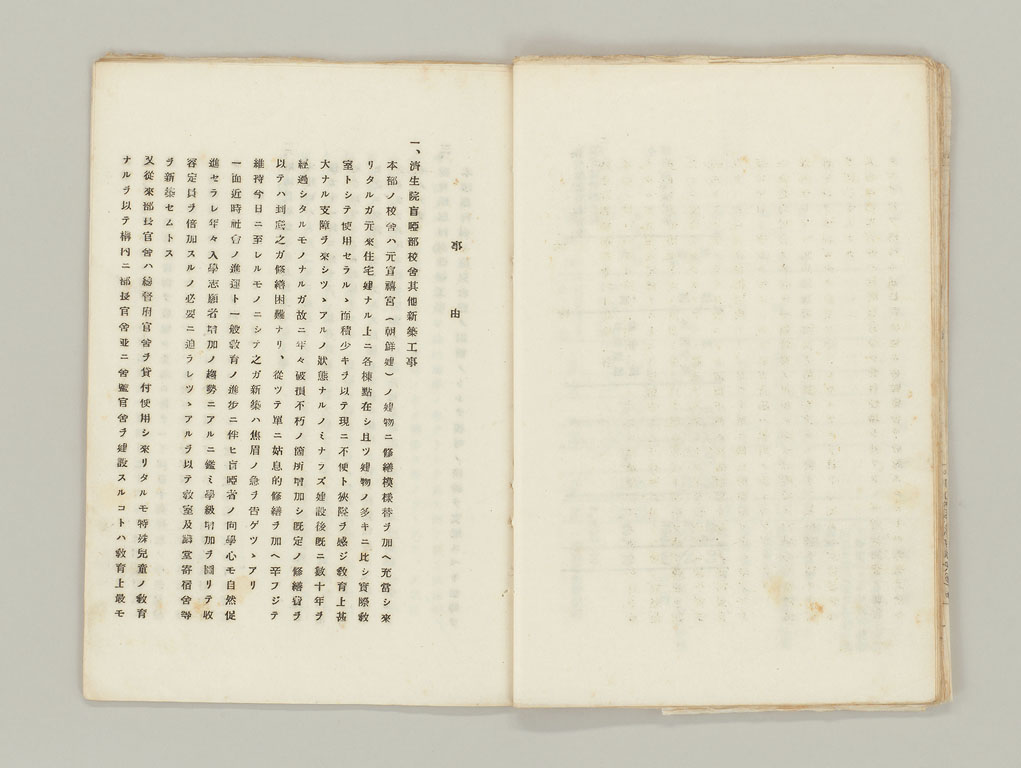 事由
一、濟生院盲啞部校舍其他新築工事
本部ノ校舍ハ元官禧宮(朝鮮建)ノ建物ニ修繕模樣替ヲ加ヘ充當シ來
リタルガ元來住宅建ナル上ニ各棟點在シ且ツ建物ノ多キニ比シ實際敎
室トシテ使用セラルヽ面積少キヲ以テ現ニ不便ト狹隘ヲ感ジ敎育上甚
大ナル支障ヲ來シツヽアルノ狀態ナルノミナラズ建設後既ニ數十年ヲ
經過シタルモノナルガ故ニ年々破損不朽ノ箇所增加シ既定ノ修繕費ヲ
以テハ到底之ガ修繕困難ナリ、從ツテ單ニ姑息的修繕ヲ加ヘ辛フジテ
維持今日ニ至レルモノニシテ之ガ新築ハ焦眉ノ急ヲ告ゲツヽアリ
一面近時社會ノ進運ト一般敎育ノ進步ニ伴ヒ盲啞者ノ向學心モ自然促
進セラレ年々入學志願者增加ノ趨勢ニアルニ鑑ミ學級增加ヲ圖リテ收
容定員ヲ倍加スルノ必要ニ迫ラレツヽアルヲ以テ敎室及講堂寄宿舍等
ヲ新築セムトス
又從來部長官舍ハ總督府官舍ヲ貸付使用シ來リタルモ特殊兒童ノ敎育
ナルヲ以テ構內ニ部長官舍並ニ舍監官舍ヲ建設スルコトハ敎育上最モ